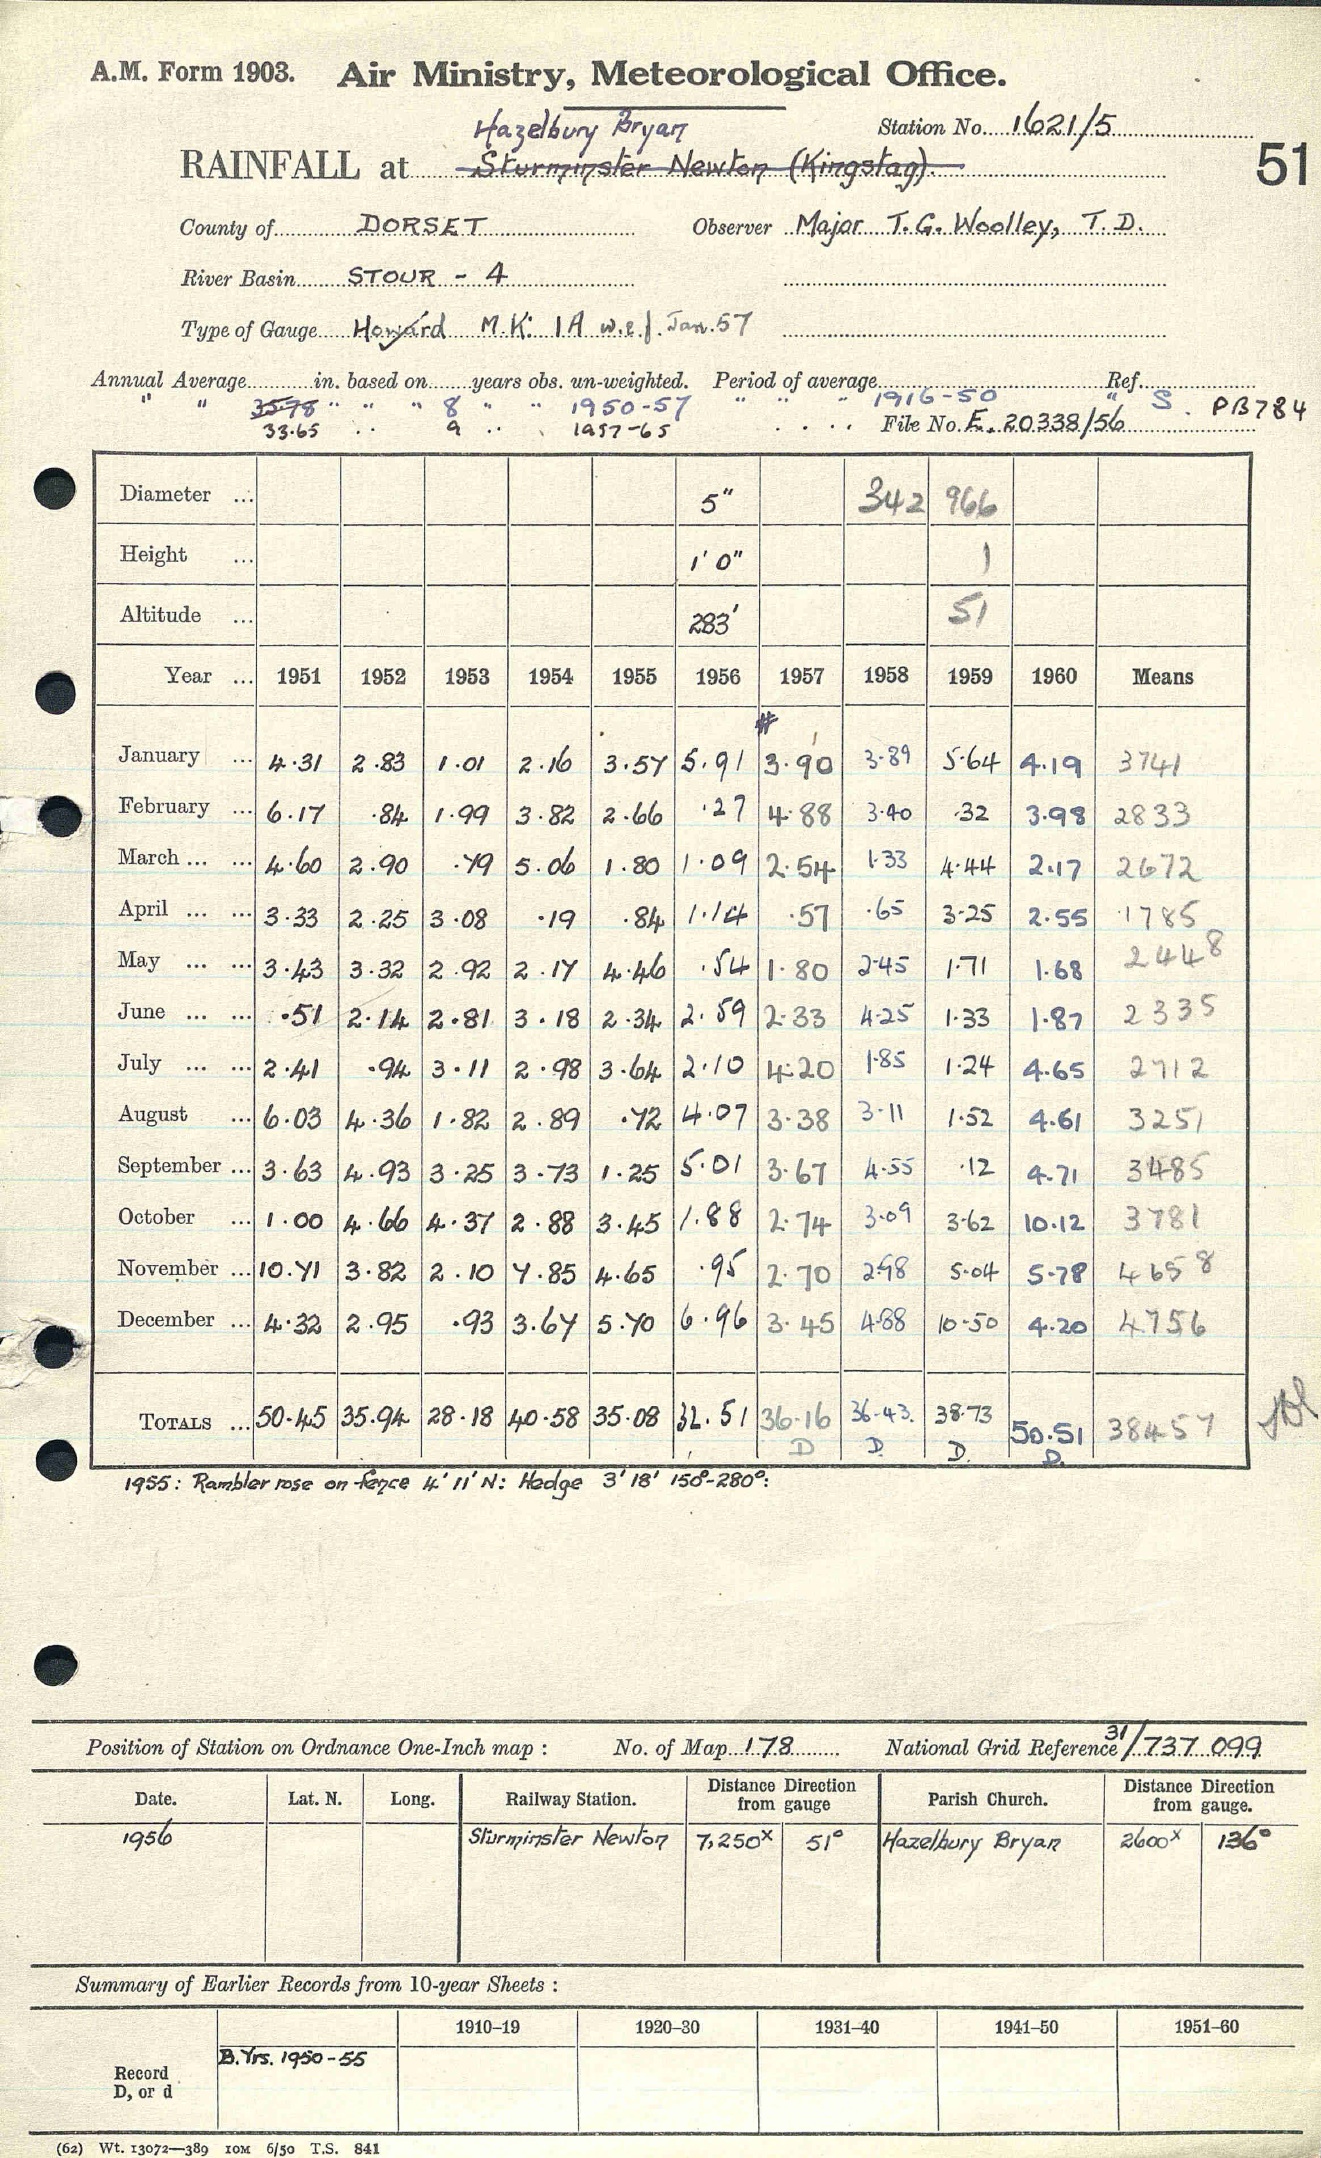 A.M. Form 1903. Air Ministry, Meteorological Office.
Hazelbury Bryan
Station No. 1621/5
RAINFALL at Sturminster Newton (Kingstag).
51
County of DORSET Observer Major T.G. Woolley, T.D.
River Basin STOUR - 4
Type of Gauge Howard M.K: 1A w.e.f. Jan. 57
Annual Average in. based on years obs. un-weighted. Period of average Ref.
" " 35.78 " " " 8 " " 1950-57 " " " 1916-50 " S. PB784
33.65 9 1957-65 File No. E. 20338/56
Diameter ... 5" 342 966
Height ... 1' 0" 1
Altitude ... 283' 51
Year ... 1951 1952 1953 1954 1955 1956 1957 1958 1959 1960 Means
January ... 4.31 2.83 1.01 2.16 3.57 5.91 3.90 3.89 5.64 4.19 3741
February ... 6.17 .84 1.99 3.82 2.66 .27 4.88 3.40 .32 3.98 2833
March ... ... 4.60 2.90 .79 5.06 1.80 1.09 2.54 1.33 4.44 2.17 2672
April ... ... 3.33 2.25 3.08 .19 .84 1.14 .57 .65 3.25 2.55 1785
May ... ... 3.43 3.32 2.92 2.17 4.46 .54 1.80 2.45 1.71 1.68 2448
June ... ... .51 2.14 2.81 3.18 2.34 2.59 2.33 4.25 1.33 1.87 2335
July ... ... 2.41 .94 3.11 2.98 3.64 2.10 4.20 1.85 1.24 4.65 2712
August ... 6.03 4.36 1.82 2.89 .72 4.07 3.38 3.11 1.52 4.61 3251
September ... 3.63 4.93 3.25 3.73 1.25 5.01 3.67 4.55 .12 4.71 3485
October ... 1.00 4.66 4.37 2.88 3.45 1.88 2.74 3.09 3.62 10.12 3781
November ... 10.71 3.82 2.10 7.85 4.65 .95 2.70 2.98 5.04 5.78 4658
December ... 4.32 2.95 .93 3.67 5.70 6.96 3.45 4.88 10.50 4.20 4756
TOTALS ... 50.45 35.94 28.18 40.58 35.08 32.51 36.16 36.43. 38.73 50.51 38457
D D. D. D.
1955: Rambler rose on fence 4' 11' N: Hedge 3' 18' 150°-280°:
Position of Station on Ordnance One-Inch map : No. of Map 178 National Grid Reference 31/737 099
Date. Lat. N. Long. Railway Station. Distance Direction from gauge Parish Church. Distance Direction from gauge.
1956 Sturminster Newton 7,250x 51° Hazelbury Bryan 2600x 136°
Summary of Earlier Records from 10-year Sheets :
1910–19 1920–30 1931–40 1941–50 1951–60
B.Yrs. 1950-55
Record
D, or d
(62) Wt. 13072—389 10M 6/50 T.S. 841